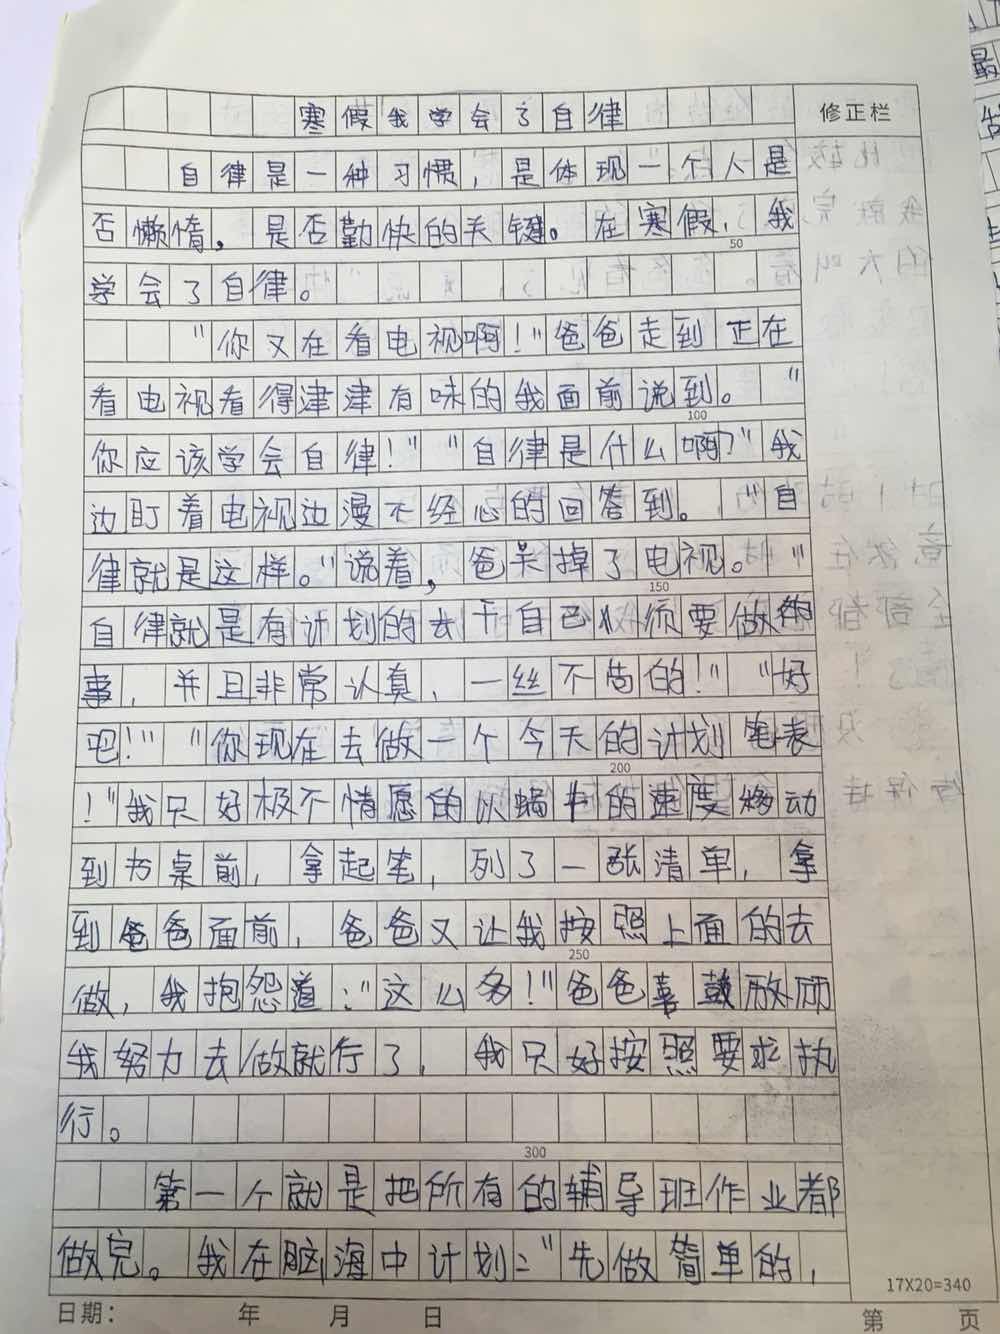 寒假我学会了自律
修正栏
自律是一种习惯，是体现一个人是
否懒惰，是否勤快的关键。在寒假，我
50
学会了自律。
"你又在看电视啊！"爸爸走到正在
看电视看得津津有味的我面前说到。"
100
你应该学会自律！""自律是什么啊？"我
边盯着电视边漫不经心的回答到。"自
律就是这样。"说着，爸关掉了电视。"
150
自律就是有计划的去干自己必须要做的
事，并且非常认真，一丝不苟的！""好
吧！""你现在去做一个今天的计划表
200
！"我只好极不情愿的以蜗牛的速度移动
到书桌前，拿起笔，列了一张清单，拿
到爸爸面前，爸爸又让我按照上面的去
250
做，我抱怨道："这么多！"爸爸鼓励
我努力去做就行了，我只好按照要求执
行。
300
第一个就是把所有的辅导班作业都
做完。我在脑海中计划："先做简单的，
17X20=340
日期： 年 月 日 第 页